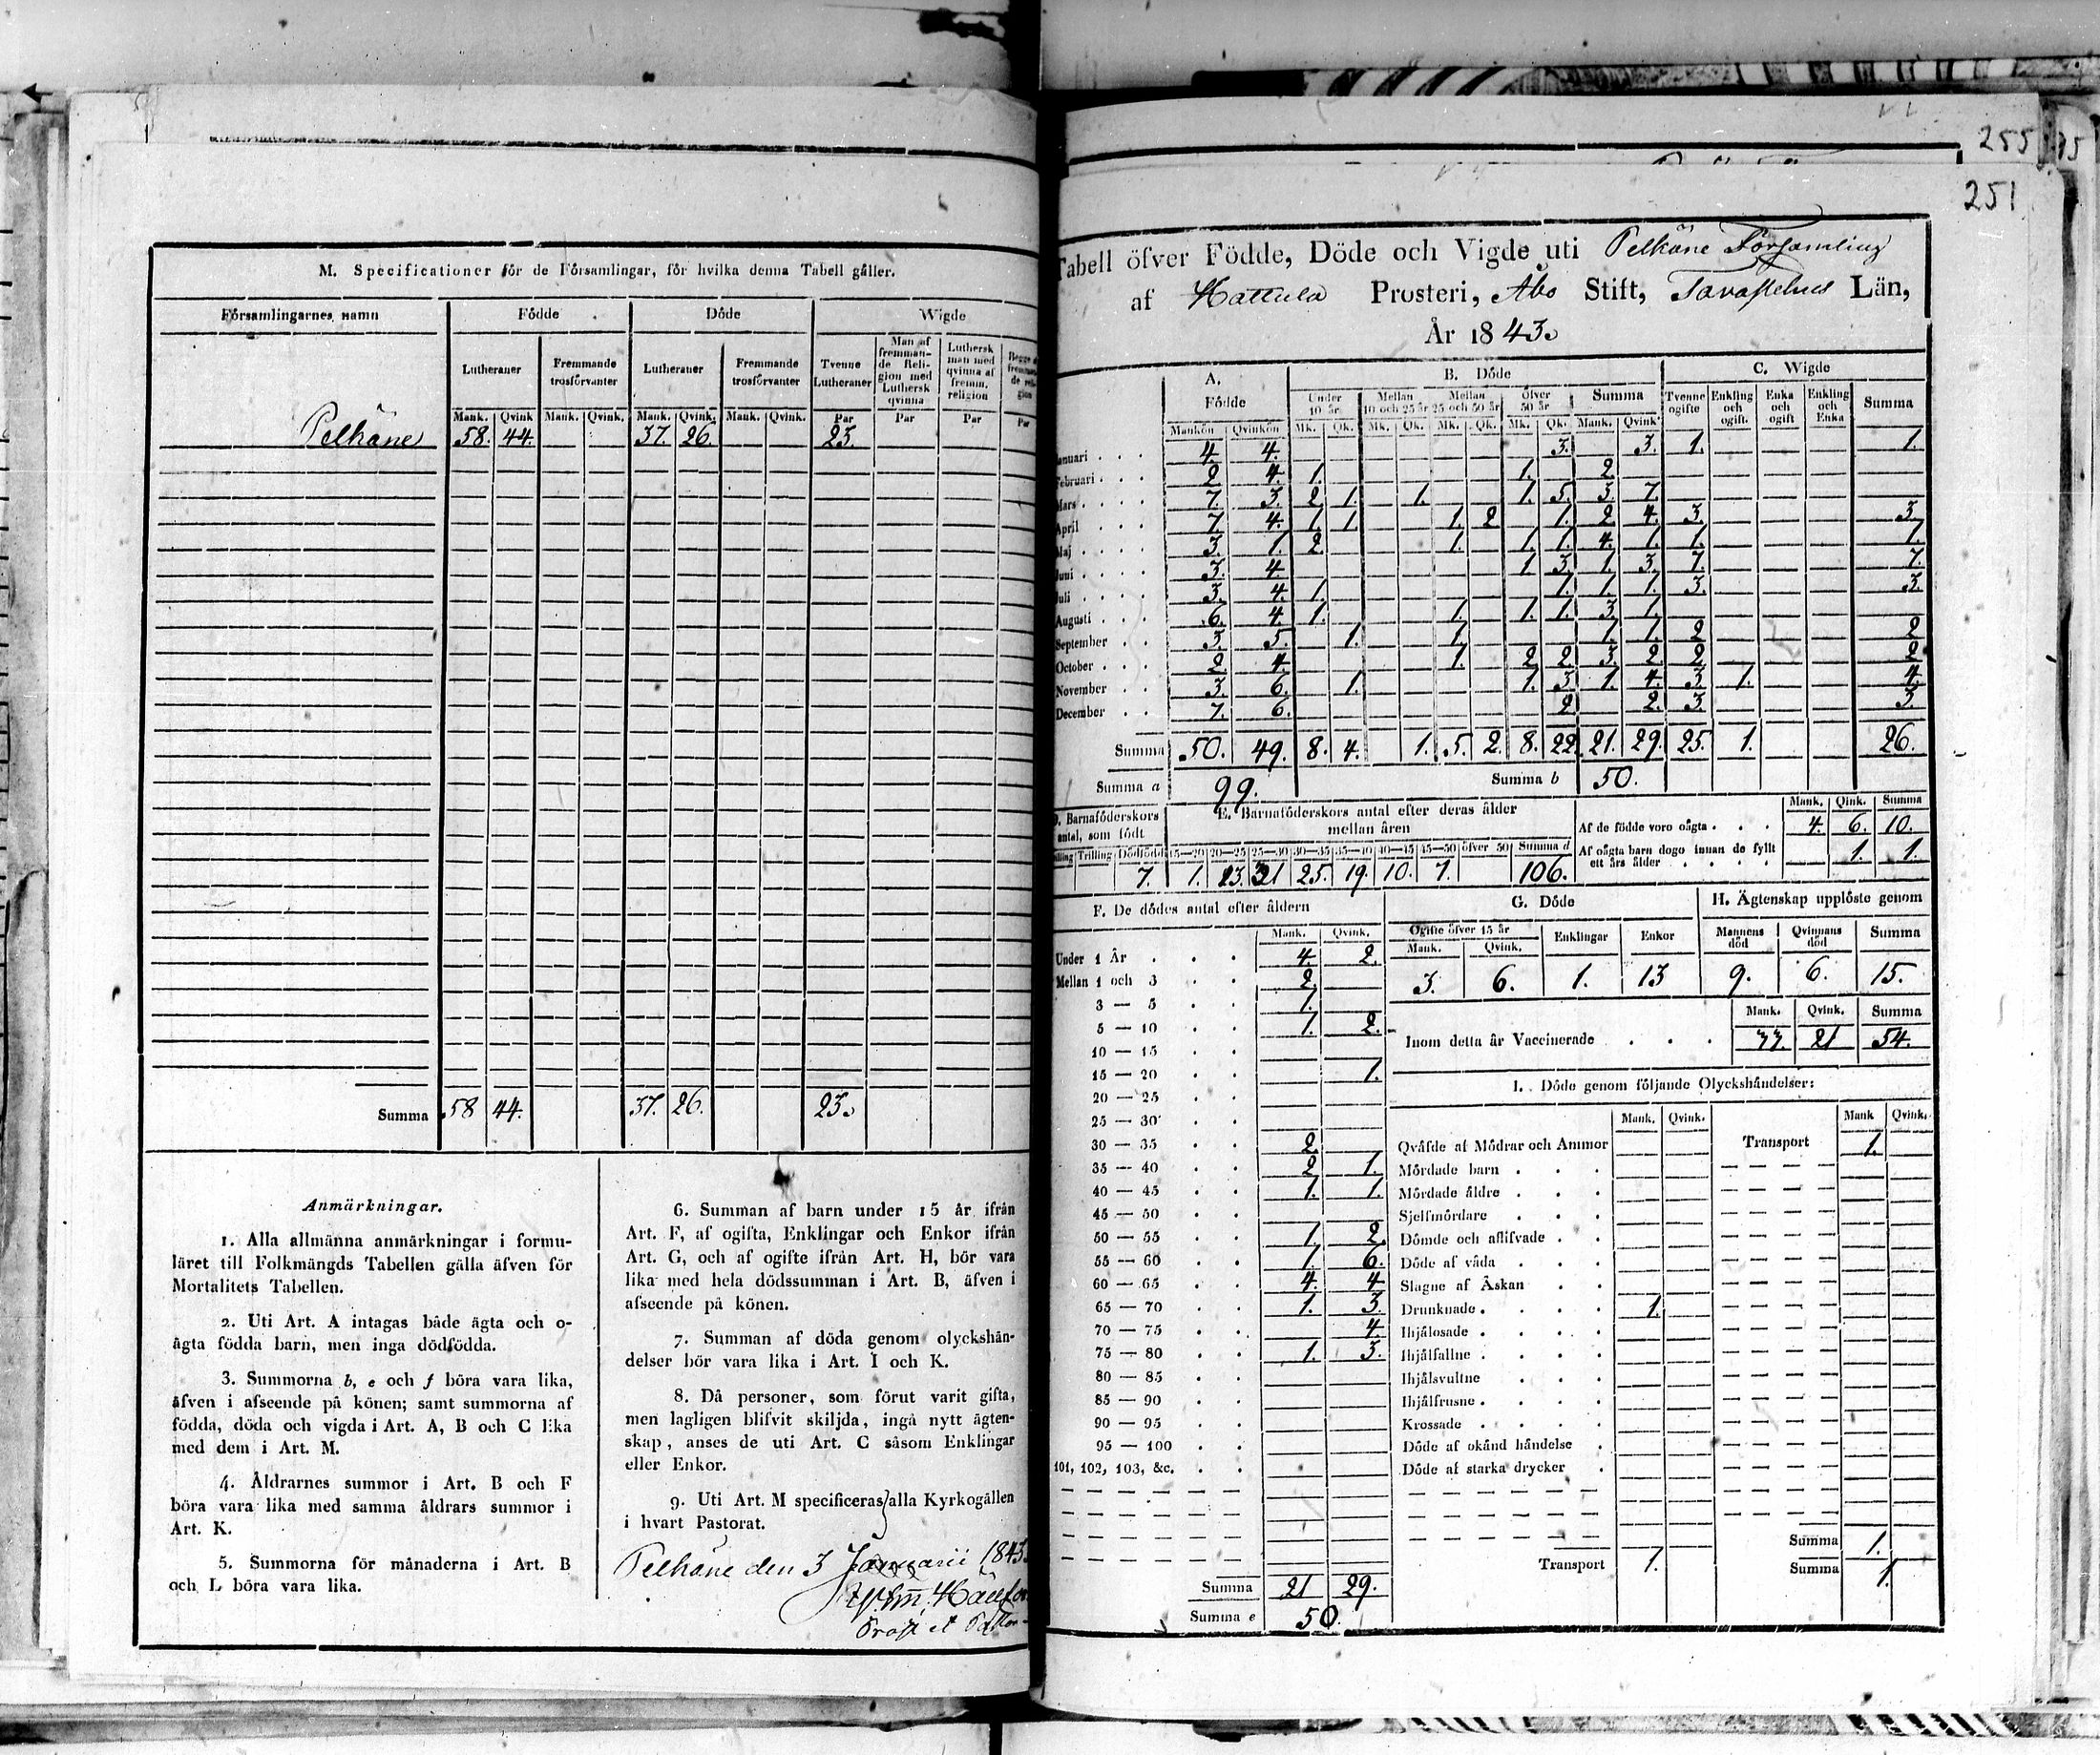 M. Specificationer för de Församlingar, för hvilka denna Tabell gäller.
Församlingarnes namn Födde Döde Wigde
Lutheraner Fremmande trosförvanter Lutheraner Fremmande trosförvanter Tvenne Lutheraner Man af fremmande Religion med Luthersk qvinna Luthersk man med qvinna af fremm. religion
Mank. Qvink Mank. Qvink. Mank. Qvink. Mank. Qvink. Par Par Par Par
Pelkäne 58. 44. 37. 26. 23.
Summa 58 44. 37. 26. 23.
Anmärkningar.
1. Alla allmänna anmärkningar i formu-
läret till Folkmängds Tabellen gälla äfven för
Mortalitets Tabellen.
2. Uti Art. A intagas både ägta och o-
ägta födda barn, men inga dödfödda.
3. Summorna b, e och f böra vara lika,
äfven i afseende på könen; samt summorna af
födda, döda och vigda i Art. A, B och C lika
med dem i Art. M.
4. Åldrarnes summor i Art. B och F
böra vara lika med samma åldrars summor i
Art. K.
5. Summorna för månaderna i Art. B
och L böra vara lika.
6. Summan af barn under 15 år ifrån
Art. F, af ogifta, Enklingar och Enkor ifrån
Art. G, och af ogifte ifrån Art. H, bör vara
lika med hela dödssumman i Art. B, äfven i
afseende på könen.
7. Summan af döda genom olyckshän-
delser bör vara lika i Art. I och K.
8. Då personer, som förut varit gifta,
men lagligen blifvit skiljda, ingå nytt ägten-
skap, anses de uti Art. C såsom Enklingar
eller Enkor.
9. Uti Art. M specificeras alla Kyrkogällen
i hvart Pastorat.
Pelkäne den 3 Januarii 1843
Prost et Pastor
255
251
Tabell öfver Födde, Döde och Vigde uti Pelkäne Församling
af Hattula Prosteri, Åbo Stift, Tavastehus Län,
År 1843.
A. Födde B. Döde C. Wigde
Under 10 år Mellan 10 och 25 år Mellan 25 och 50 år Öfver 50 år Summa Tvenne ogifte Enkling och ogift. Enka och ogift Enkling och Enka Summa
Mankön Qvinkön Mk. Qk. Mk. Qk. Mk. Qk. Mk. Qk. Mank. Qvink
Januari 4. 4. 3. 3. 1. 1.
Februari 2 4. 1. 1. 2
Mars 7. 3. 2 1. 1. 1. 5. 3. 7.
April 7. 4. 1. 1. 1. 2 1. 2 4. 3. 3
Maj 3. 1. 2. 1. 1. 1. 4. 1. 1. 1.
Juni 3. 4. 1 3. 1. 3. 7. 7.
Juli 3. 4. 1. 1. 1. 1. 3. 3.
Augusti 6. 4. 1. 1. 1. 1. 3 1.
September 3. 5. 1. 1. 1. 1. 2 2
October 2 4. 1. 2 2. 3. 2. 2. 2
November 3. 6. 1. 1. 3. 1. 4. 3. 1. 4
December 7. 6. 2 2. 3. 3.
Summa 50. 49. 8. 4. 1. 5. 2. 8. 22. 21. 29. 25. 1. 26.
Summa a 99. Summa b 50.
D. Barnaföderskors antal, som födt
Trilling Dödfödd
7.
E. Barnaföderskors antal efter deras ålder mellan åren
15—20 20—25 25—30 30—35 35—40 40—45 45—50 öfver 50 Summa d
1. 23. 21 25. 19. 10. 7. 106.
Mank. Qink. Summa
Af de födde voro oägta 4. 6. 10.
Af oägta barn dogo innan de fyllt ett års ålder 1. 1.
F. De dödes antal efter åldern
Mank. Qvink.
Under 1 År 4. 2.
Mellan 1 och 3 2.
3 — 5 1.
5 — 10 1. 2.
10 — 15
15 — 20 1.
20 — 25
25 — 30
30 — 35 2.
35 — 40 2 1.
40 — 45 1. 1.
45 — 50
50 — 55 1. 2.
55 — 60 1. 6.
60 — 65 4. 4
65 — 70 1. 3.
70 — 75 4.
75 — 80 1. 3.
80 — 85
85 — 90
90 — 95
95 — 100
101, 102, 103, &c.
Summa 21 29.
Summa e 50.
G. Döde
Ogifte öfver 15 år Enklingar Enkor
Mank. Qvink.
3. 6. 1. 13
H. Ägtenskap upplöste genom
Mannens död Qvinnans död Summa
9. 6. 15.
Mank. Qvink. Summa
Inom detta år Vaccinerade 33. 21 54.
I. Döde genom följande Olyckshändelser:
Mank. Qvink. Mank Qvink.
Qväfde af Mödrar och Ammor Transport 1.
Mördade barn
Mördade äldre
Sjelfmördare
Dömde och aflifvade
Döde af våda
Slagne af Åskan
Drunknade 1.
Ihjälosade
Ihjälfallne
Ihjälsvultne
Ihjälfrusne
Krossade
Döde af okänd händelse
Döde af starka drycker
Summa 1.
Transport 1. Summa 1.